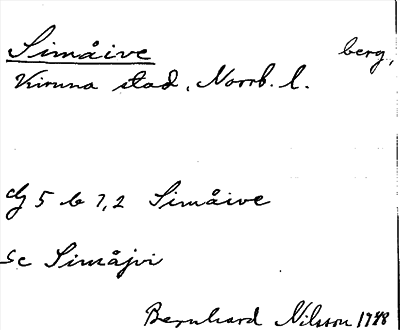 Simåive berg,
Kiruna stad, Norrb. l.
dg 5 b 7,2 Simåive
Sc Simåjvi
Bernhard Nilsson